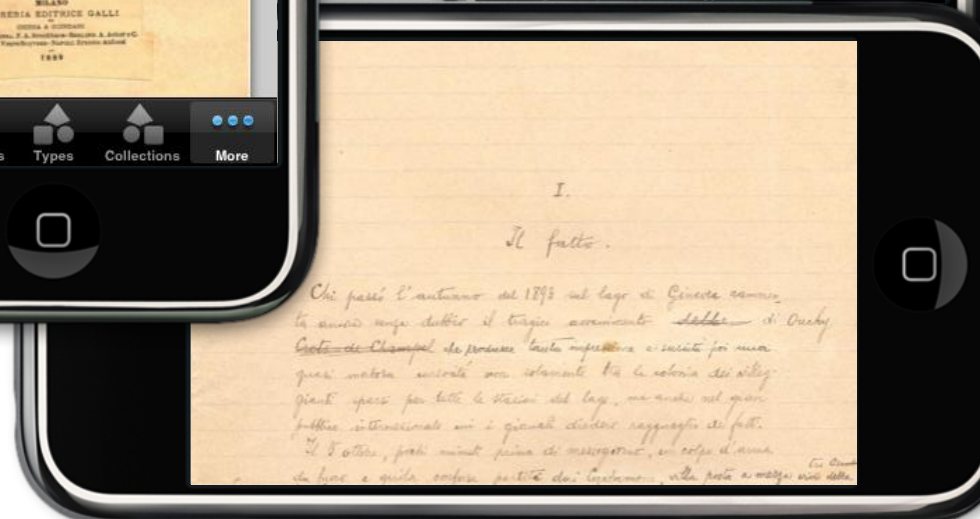 MILANO
LIBRERIA EDITRICE GALLI
1889
Types
Collections
More
I.
Il fatto.
Chi passò l'autunno del 1893 sul lago di Ginevra rammen-
ta ancora senza dubbio il tragico avvenimento delle di Ouchy
che produsse tanta impressione e suscitò poi una
quasi morbosa curiosità non solamente tra la colonia dei villeg-
gianti sparsi per tutte le stazioni del lago, ma anche nel gran
pubblico internazionale cui i giornali diedero ragguaglio dei fatti.
Il 5 ottobre, pochi minuti prima di mezzogiorno, un colpo d'arma
da fuoco e grida confuse partite dai Cyclamens, villa posta a mezza via della